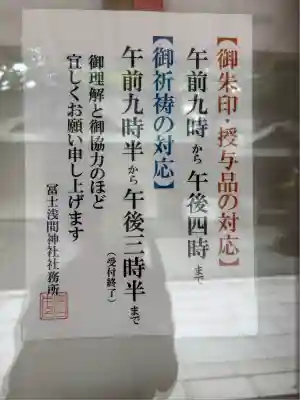 【御朱印・授与品の対応】
午前九時から午後四時まで
【御祈祷の対応】
午前九時半から午後三時半まで
（受付終了）
御理解と御協力のほど
宜しくお願い申し上げます
冨士浅間神社社務所